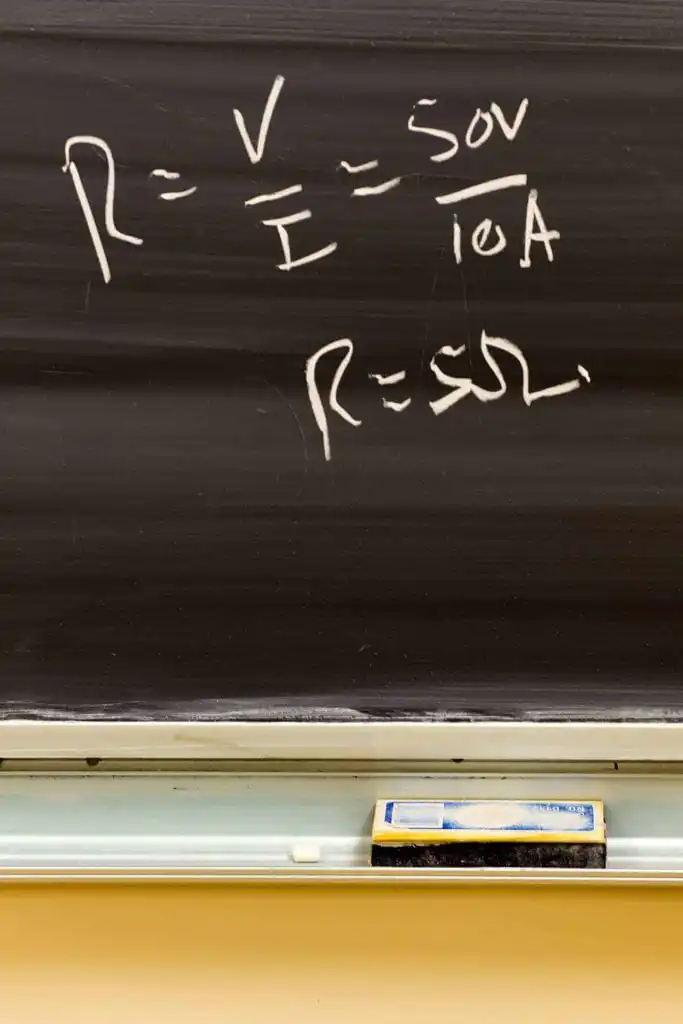 R = V/I = 50V/10A
R = 5Ω